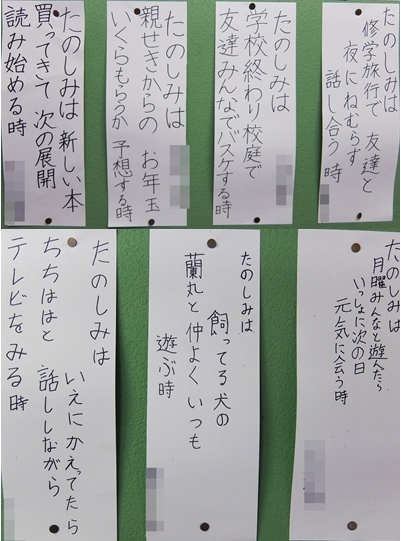 たのしみは
修学旅行で 友達と
夜にねむらず
話し合う 時
たのしみは
学校終わり校庭で
友達みんなでバスケする時
たのしみは
親せきからの お年玉
いくらもらうか 予想する時
たのしみは 新しい本
買ってきて 次の展開
読み始める 時
たのしみは
月曜みんなと遊んだら
いっしょに次の日
元気に会う時
たのしみは
飼ってる犬の
蘭丸と仲よく いつも
遊ぶ時
たのしみは
いえにかえってたら
ちちははと 話ししながら
テレビをみる時